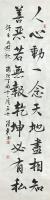 人心動一念天地盡相知
善惡若無報乾坤必有私